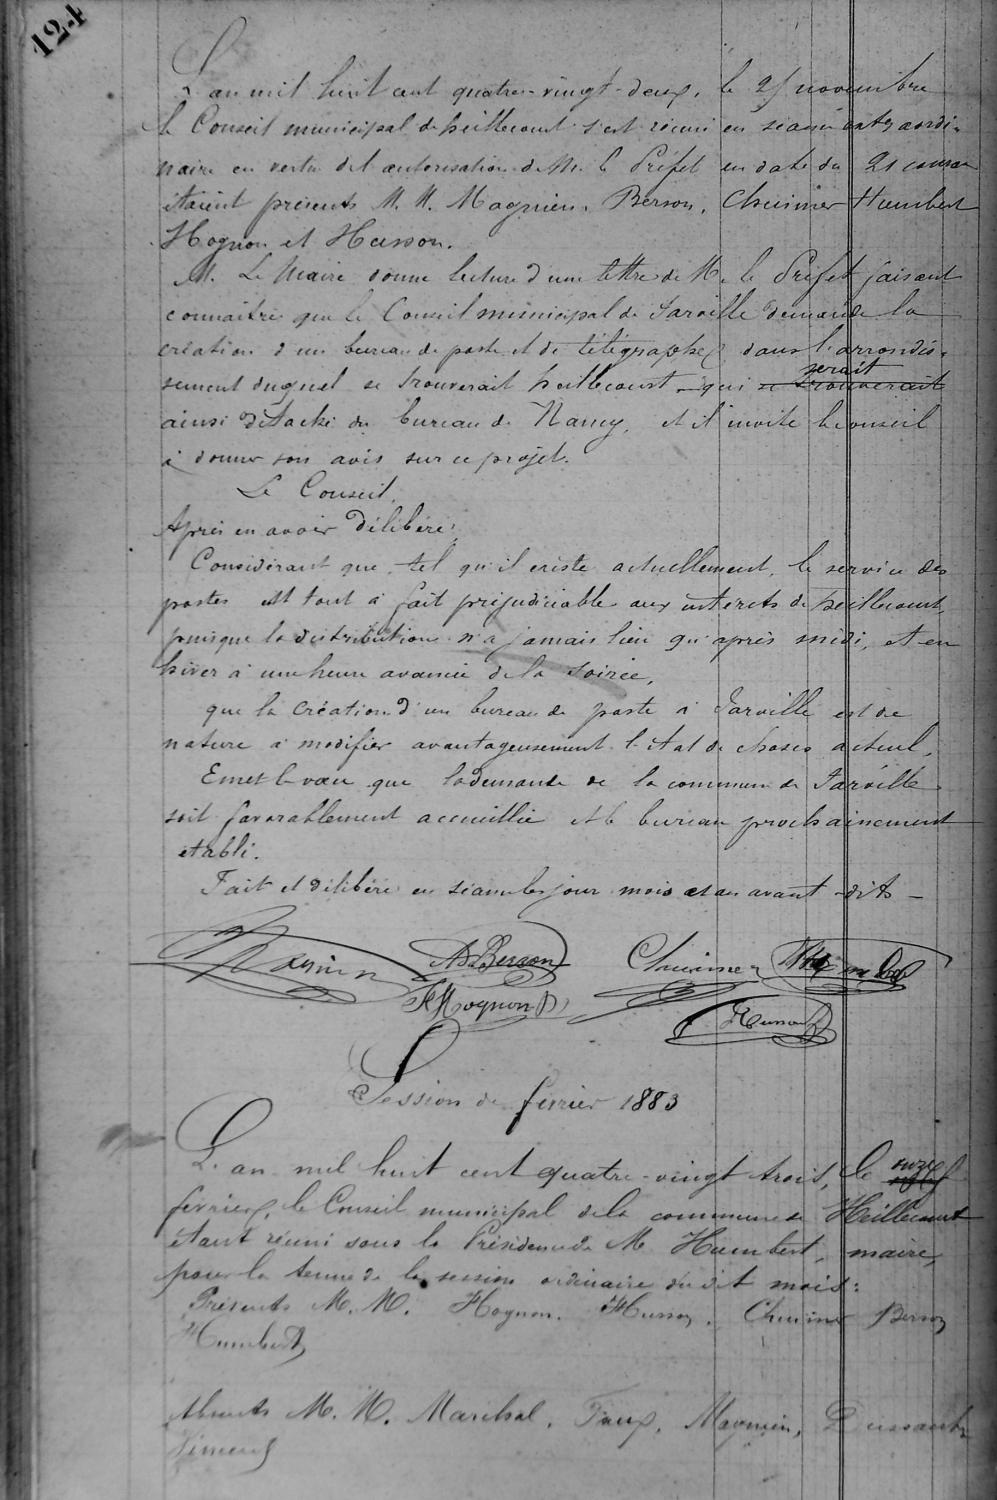 124
L'an mil huit cent quatre-vingt-deux, le 25 novembre
le Conseil municipal de heillecourt s'est réuni en séance extraordi-
naire en vertu de l'autorisation de M. le Préfet en date du 21 courant
étaient présents M. M. Magnien, Berson, Chuinner Humbert
Hognon et Husson.
M. Le Maire donne lecture d'une lettre de M. le Préfet faisant
connaitre que le Conseil municipal de Jarville demande la
création d'un bureau de poste et de télégraphe, dans l'arrondis-
serait
sement duquel se trouverait heillecourt qui se trouverait
ainsi détaché du bureau de Nancy, et il invite le conseil
à donner son avis sur ce projet.
Le Conseil,
Après en avoir délibéré,
Considérant que, tel qu'il existe actuellement, le service des
postes est tout à fait préjudiciable aux intérêts de heillecourt,
puisque la distribution n'a jamais lieu qu'après midi, et en
hiver à une heure avancée de la soirée,
que la création d'un bureau de poste à Jarville est de
nature à modifier avantageusement l'état de choses actuel,
Emet le vœu que la demande de la commune de Jarville
soit favorablement accueillie et le bureau prochainement
établi.
Fait et délibéré en séance les jour mois et an avant-dits
Magnien AD Berson Chuinner Humbert
Hognon Husson
Session de février 1883
L'an mil huit cent quatre-vingt trois, le onze
février, le Conseil municipal de la commune de Heillecourt
étant réuni sous la Présidence de M Humbert, maire,
pour la tenue de la session ordinaire du dit mois:
Présents M. M. Hognon, Husson, Chuinner Berson
Humbert
Absents M. M. Marchal, Magnien,